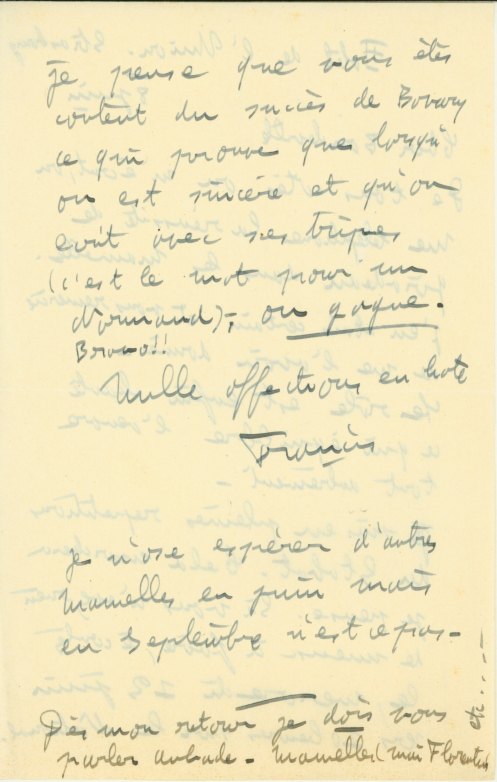 Je pense que vous êtes
content du succès de Bovary
ce qui prouve que lorsqu'
on est sincère et qu'on
écrit avec ses tripes
(c'est le mot pour un
Normand), on gagne.
Bravo!!
Mille affections en hâte
Francis
Je n'ose espérer d'autres
Mamelles en juin mais
en Septembre n'est ce pas -
etc.....
Dès mon retour je dois vous
parler aubade - Mamelles (mai Florentin